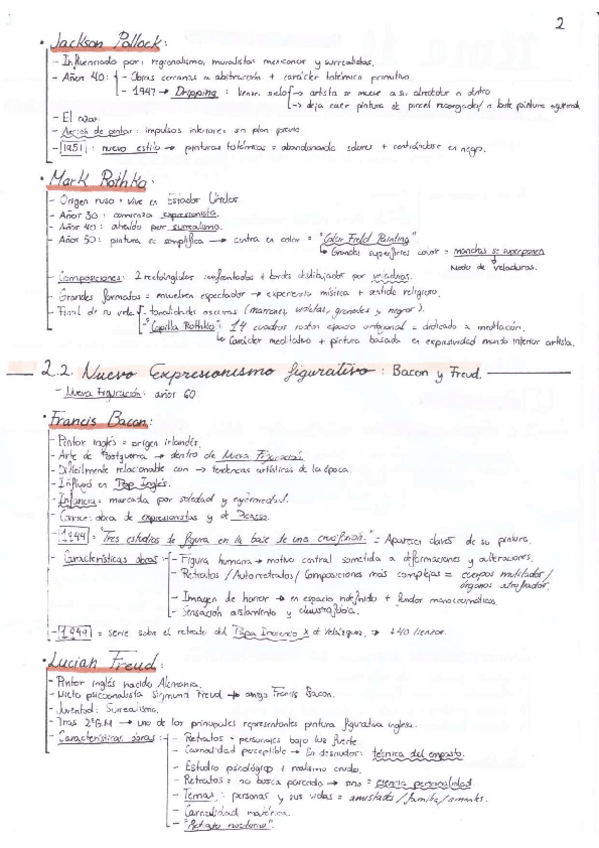 2
· Jackson Pollock:
- Influenciado por: regionalismo, muralistas mexicanos y surrealistas.
- Años 40: - Obras cercanas a abstracción + carácter totémico primitivo
- 1947 → Dripping: lienzo suelo → artista se mueve a su alrededor o dentro
→ deja caer pintura de pincel recargado/ o bote pintura agujereado
- El azar.
- Acción de pintar: impulsos interiores sin plan previo
- 1951: nuevo estilo → pinturas totémicas = abandonando colores + centrándose en negro.
· Mark Rothko:
- Origen ruso + vive en Estados Unidos.
- Años 30: comienza expresionista.
- Años 40: atraído por surrealismo.
- Años 50: pintura se simplifica → centra en color = "Color Field Painting"
↳ Grandes superficies color = manchas se superponen
Modo de veladuras.
- Composiciones: 2 rectángulos confrontados + bordes desdibujados por veladuras.
- Grandes formatos = envuelven espectador → experiencia mística + sentido religioso.
- Final de su vida - tonalidades oscuras (marrones, violetas, granates y negros).
- "Capilla Rothko": 14 cuadros rodean espacio octogonal = dedicado a meditación.
↳ Carácter meditativo + pintura basada en expresividad mundo interior artista.
2.2. Nuevo Expresionismo figurativo: Bacon y Freud.
- Nueva Figuración: años 60
· Francis Bacon:
- Pintor inglés = origen irlandés.
- Arte de Postguerra → dentro de Nueva Figuración.
- Difícilmente relacionable con → tendencias artísticas de la época.
- Influyó en Pop Inglés.
- Infancia: marcada por soledad y enfermedad.
- Conoce: obra de expresionistas y de Picasso.
- 1944: "Tres estudios de figura en la base de una crucifixión" = Aparecen claves de su pintura.
- Características obras: - Figura humana → motivo central sometida a deformaciones y alteraciones.
- Retratos / Autorretratos / Composiciones más complejas = cuerpos mutilados/
órganos atrofiados.
- Imagen de horror → en espacio indefinido + fondos monocromáticos.
- Sensación aislamiento y claustrofobia.
- 1949 = serie sobre el retrato del Papa Inocencio X de Velázquez → +40 lienzos.
· Lucian Freud:
- Pintor inglés nacido Alemania.
- Nieto psicoanalista Sigmund Freud → amigo Francis Bacon.
- Juventud: Surrealismo.
- Tras 2ªG.M → uno de los principales representantes pintura figurativa inglesa.
- Características obras: - Retratos - personajes bajo luz fuerte
- Carnalidad perceptible → En desnudos: técnica del empasto.
- Estudio psicológico + realismo crudo.
- Retratos = no busca parecido → sino = esencia personalidad
- Temas: personas y sus vidas = amistades/familia/amantes.
- Carnalidad matérica.
- "Retrato nocturno".